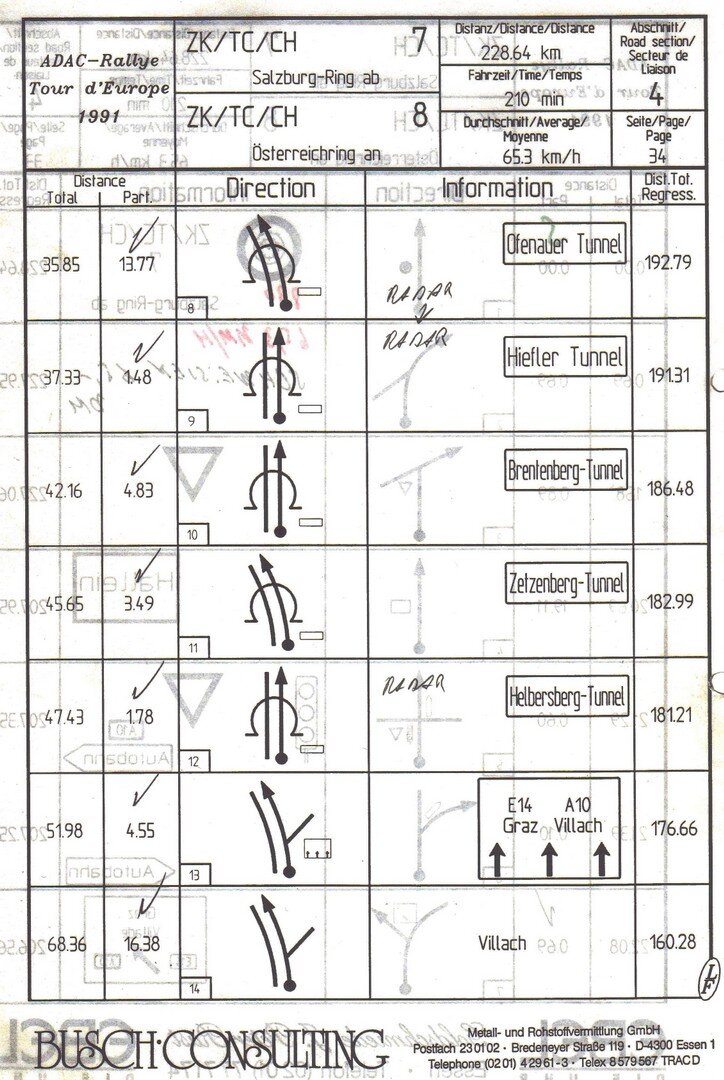 ADAC-Rallye
Tour d'Europe
1991
ZK/TC/CH 7
Salzburg-Ring ab
ZK/TC/CH 8
Österreichring an
Distanz/Distance/Distance
228.64 km
Fahrzeit/Time/Temps
210 min
Durchschnitt/Average/
Moyenne
65.3 km/h
Abschnitt/
Road section/
Secteur de
Liaison
4
Seite/Page/
Page
34
Distance
Total Part.
Direction
Information
Dist.Tot.
Regress.
35.85 13.77 8 RADAR Ofenauer Tunnel 192.79
37.33 1.48 9 RADAR Hiefler Tunnel 191.31
42.16 4.83 10 Brentenberg-Tunnel 186.48
45.65 3.49 11 Zetzenberg-Tunnel 182.99
47.43 1.78 12 RADAR Helbersberg-Tunnel 181.21
51.98 4.55 13 E14 A10 176.66
Graz Villach
68.36 16.38 14 Villach 160.28
L/F
BUSCH·CONSULTING
Metall- und Rohstoffvermittlung GmbH
Postfach 230102 · Bredeneyer Straße 119 · D-4300 Essen 1
Telephone (0201) 42961-3 · Telex 8579567 TRAC D